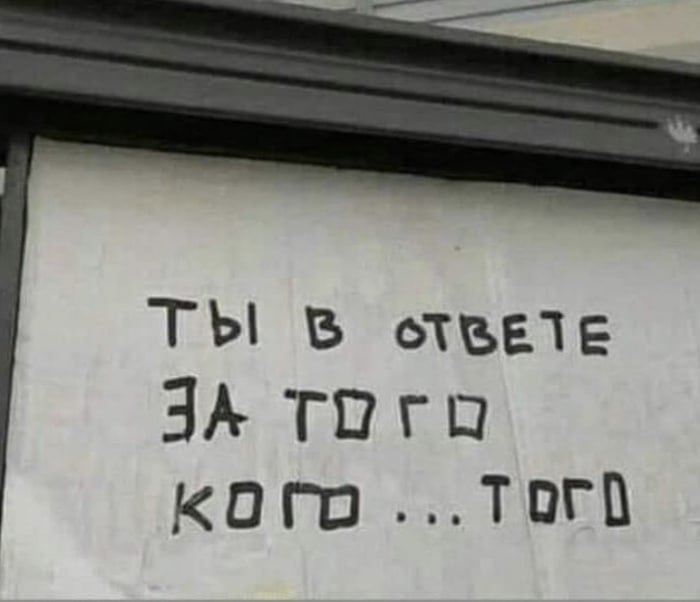 ТЫ В ОТВЕТЕ
ЗА ТОГО
КОГО ... ТОГО